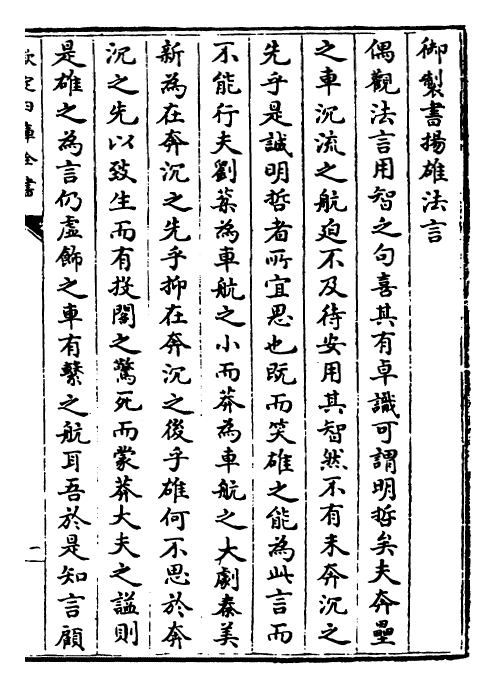 御製書揚雄法言
偶觀法言用智之句喜其有卓識可謂明哲矣夫奔壘
之車沉流之航迨不及待安用其智然不有未奔沉之
先乎是誠明哲者所宜思也既而笑雄之能為此言而
不能行夫劉棻為車航之小而莽為車航之大劇秦美
新為在奔沉之先乎抑在奔沉之後乎雄何不思於奔
沉之先以致生而有投閣之驚死而蒙莽大夫之謚則
是雄之為言仍虛飾之車有繫之航耳吾於是知言顧
欽定四庫全書
二